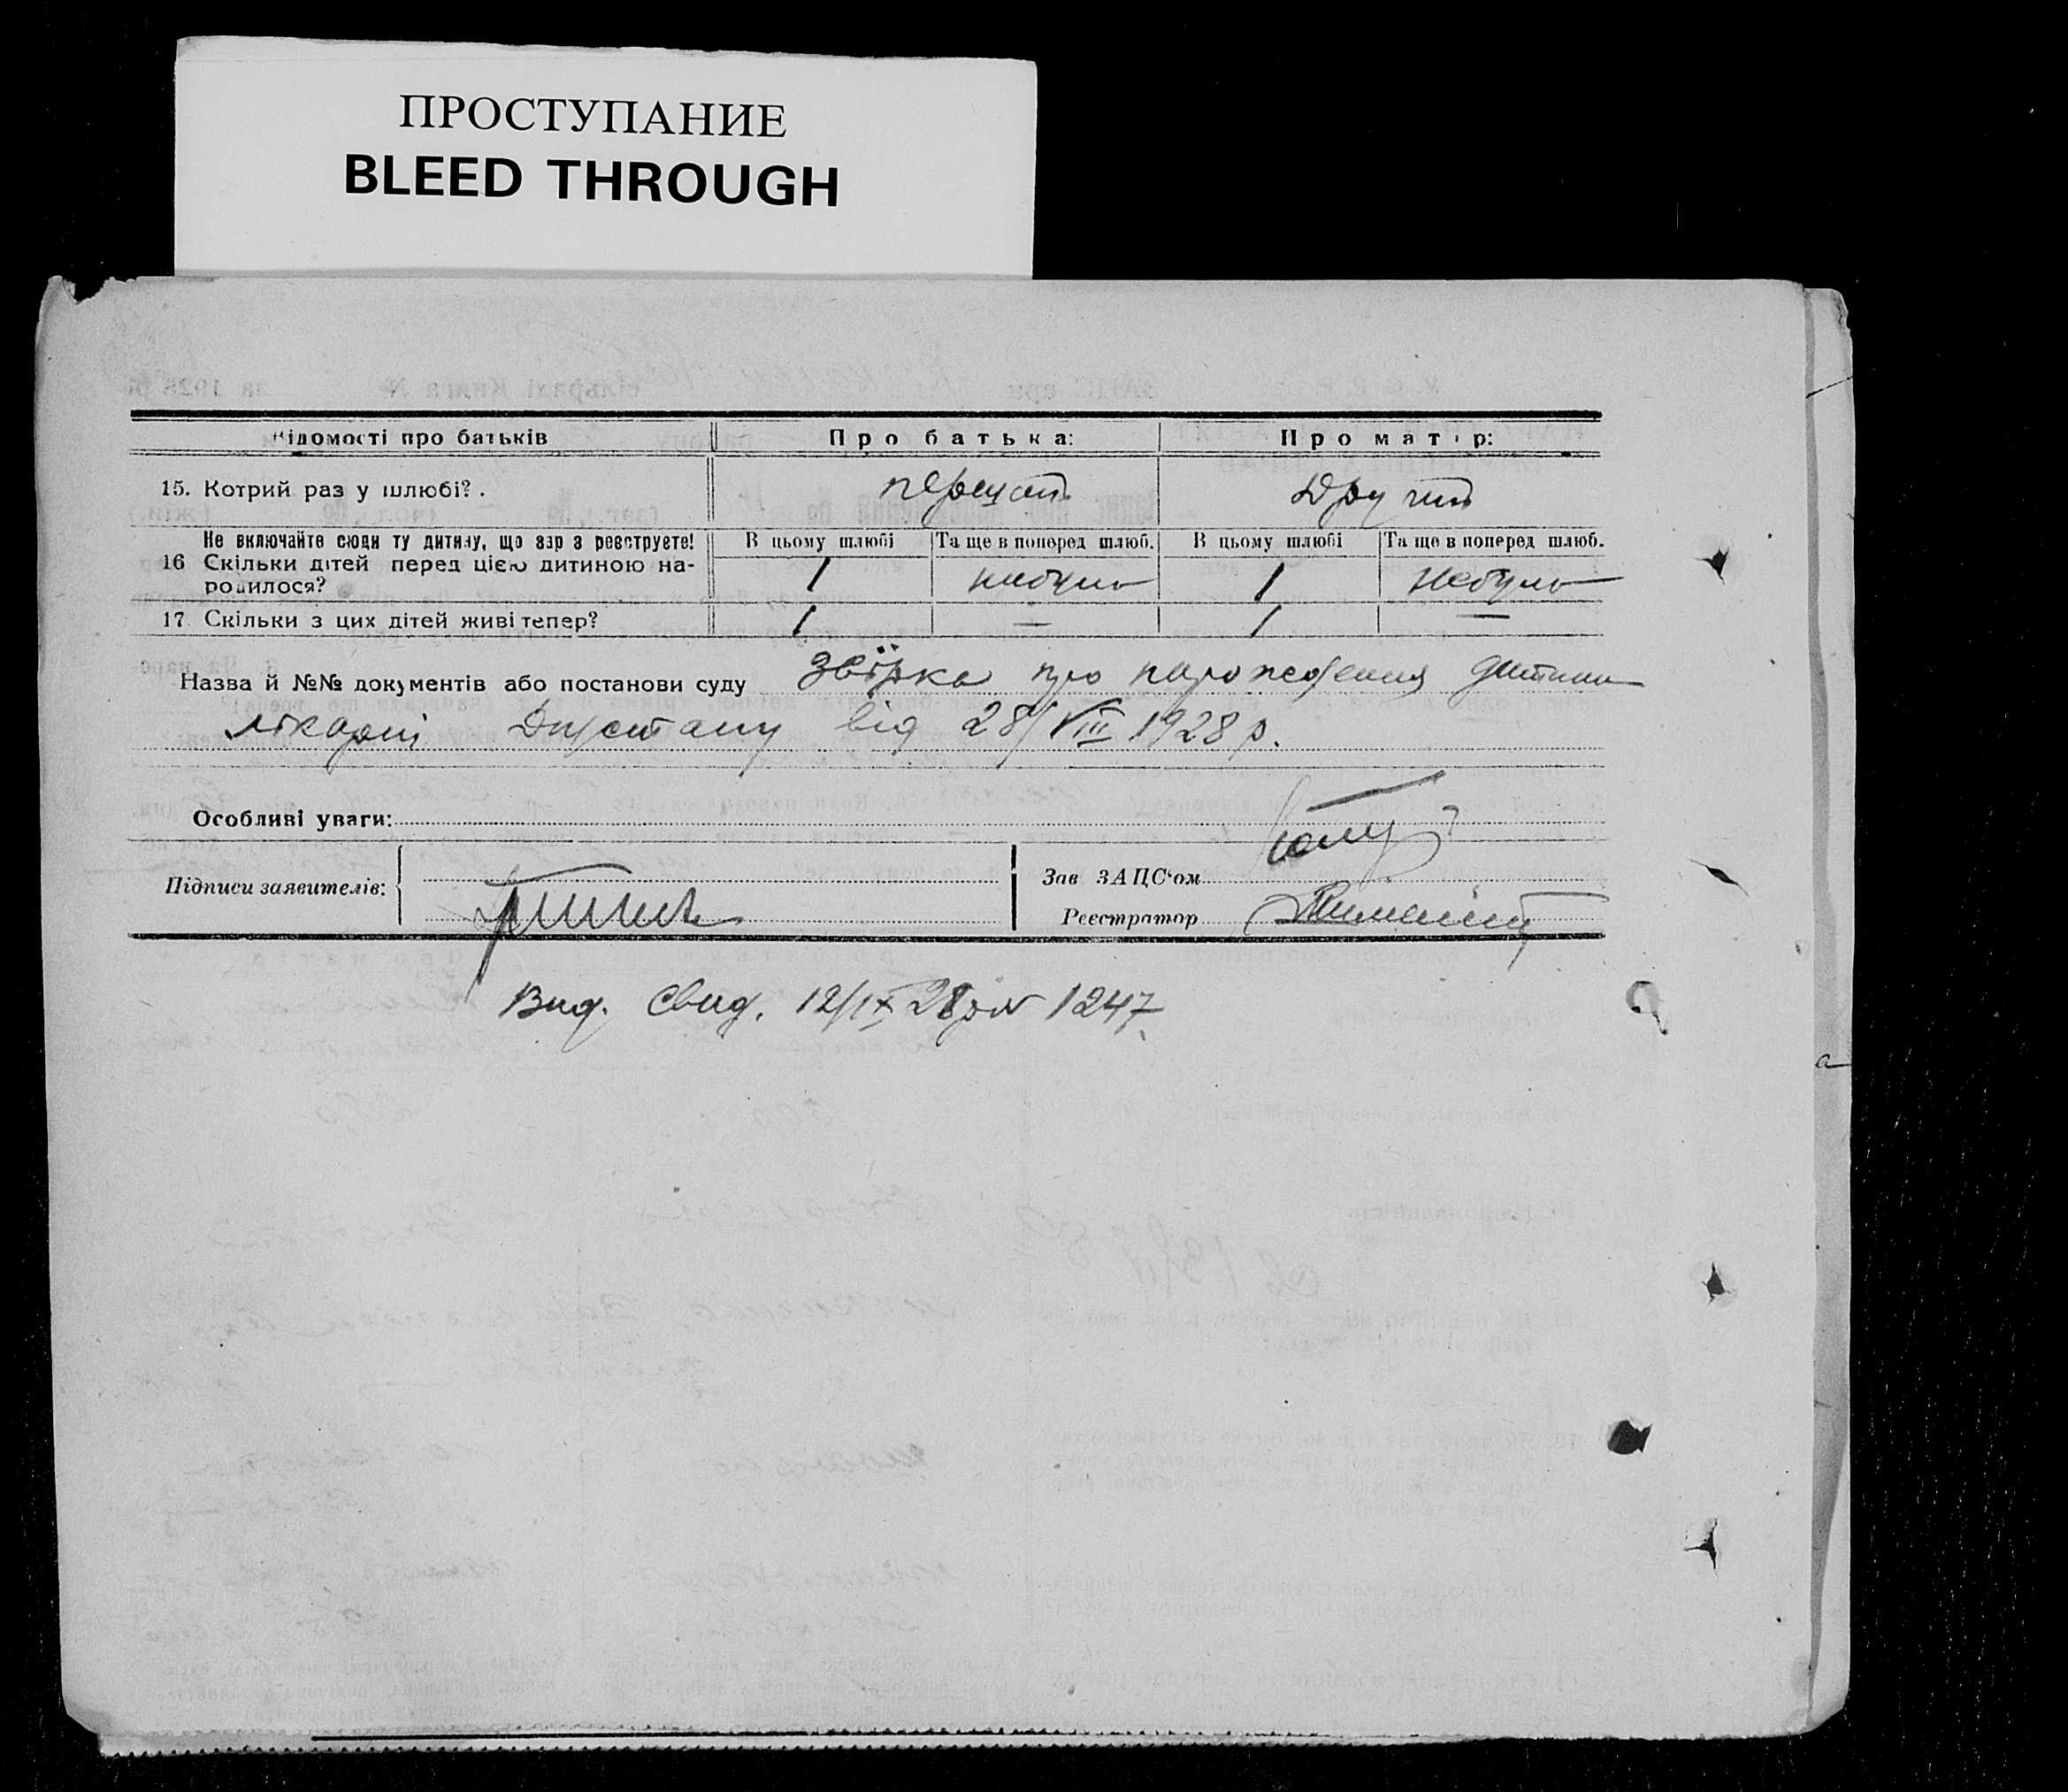 ПРОСТУПАНИЕ
BLEED THROUGH
Відомості про батьків Про батька: Про матір:
15. Котрий раз у шлюбі?. перший другий
Не включайте сюди ту дитину, що зар з реєструєте! В цьому шлюбі Та ще в поперед шлюб. В цьому шлюбі Та ще в поперед шлюб.
16 Скільки дітей перед цією дитиною на-
родилося? 1 небуло 1 небуло
17 Скільки з цих дітей живі тепер? 1 — 1 —
Назва й №№ документів або постанови суду звірка про нарождення дитини
лікарні від 28/VIII 1928 р.
Особливі уваги:
Підписи заявителів: Зав ЗАЦС‘ом
Реєстратор
Вид. Свид. 12/IX 28 р № 1247